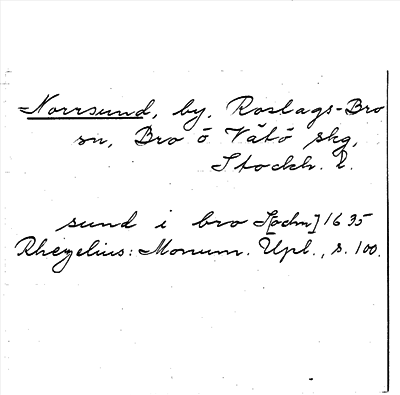 Norrsund, by, Roslags-Bro
sn, Bro o Vätö skg,
Stockh. l.
sund i bro S[ochn] 1635
Rhezelius: Monum. Upl., s. 100.